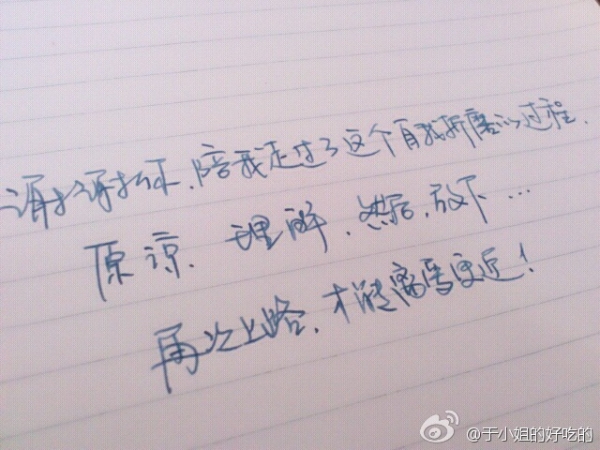 陪我走过了这个自我折磨的过程.
原谅.理解.然后.放下...
再次上路.才能离更近!
@于小姐的好吃的